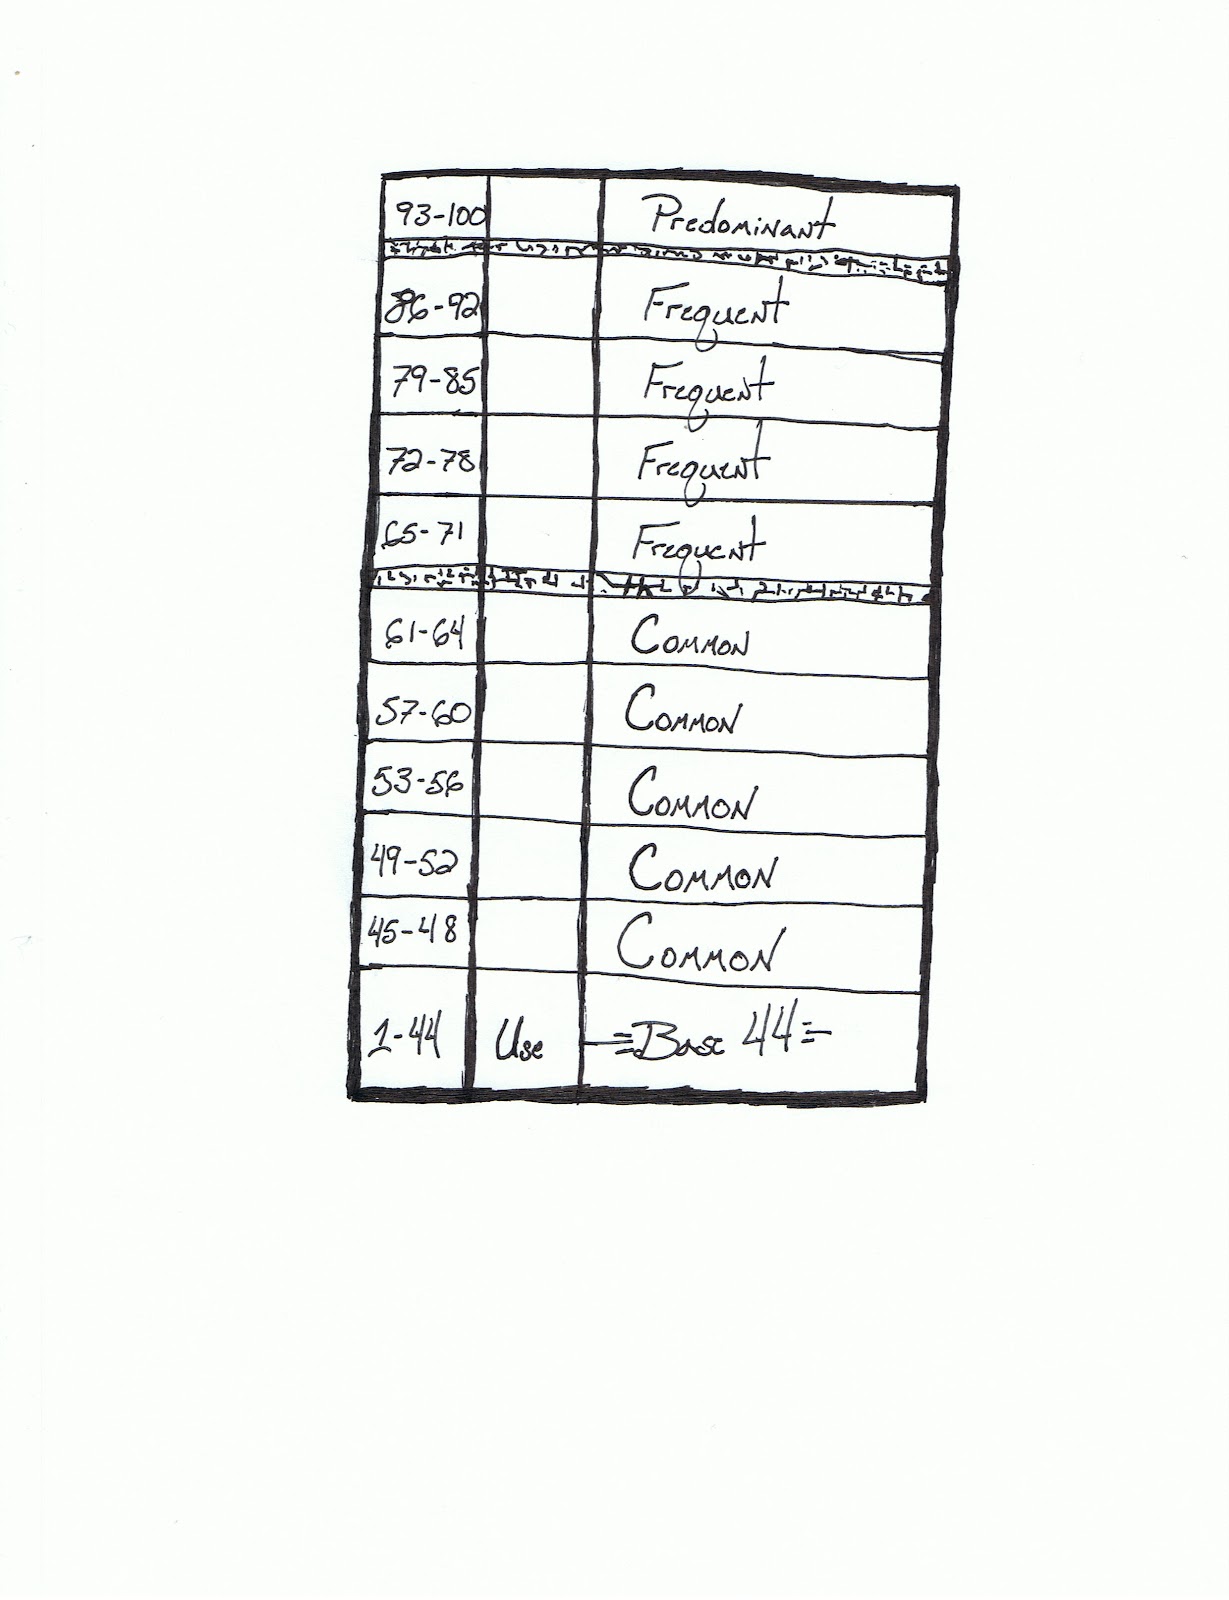 93-100 Predominant
86-92 Frequent
79-85 Frequent
72-78 Frequent
65-71 Frequent
61-64 Common
57-60 Common
53-56 Common
49-52 Common
45-48 Common
1-44 Use Base 44